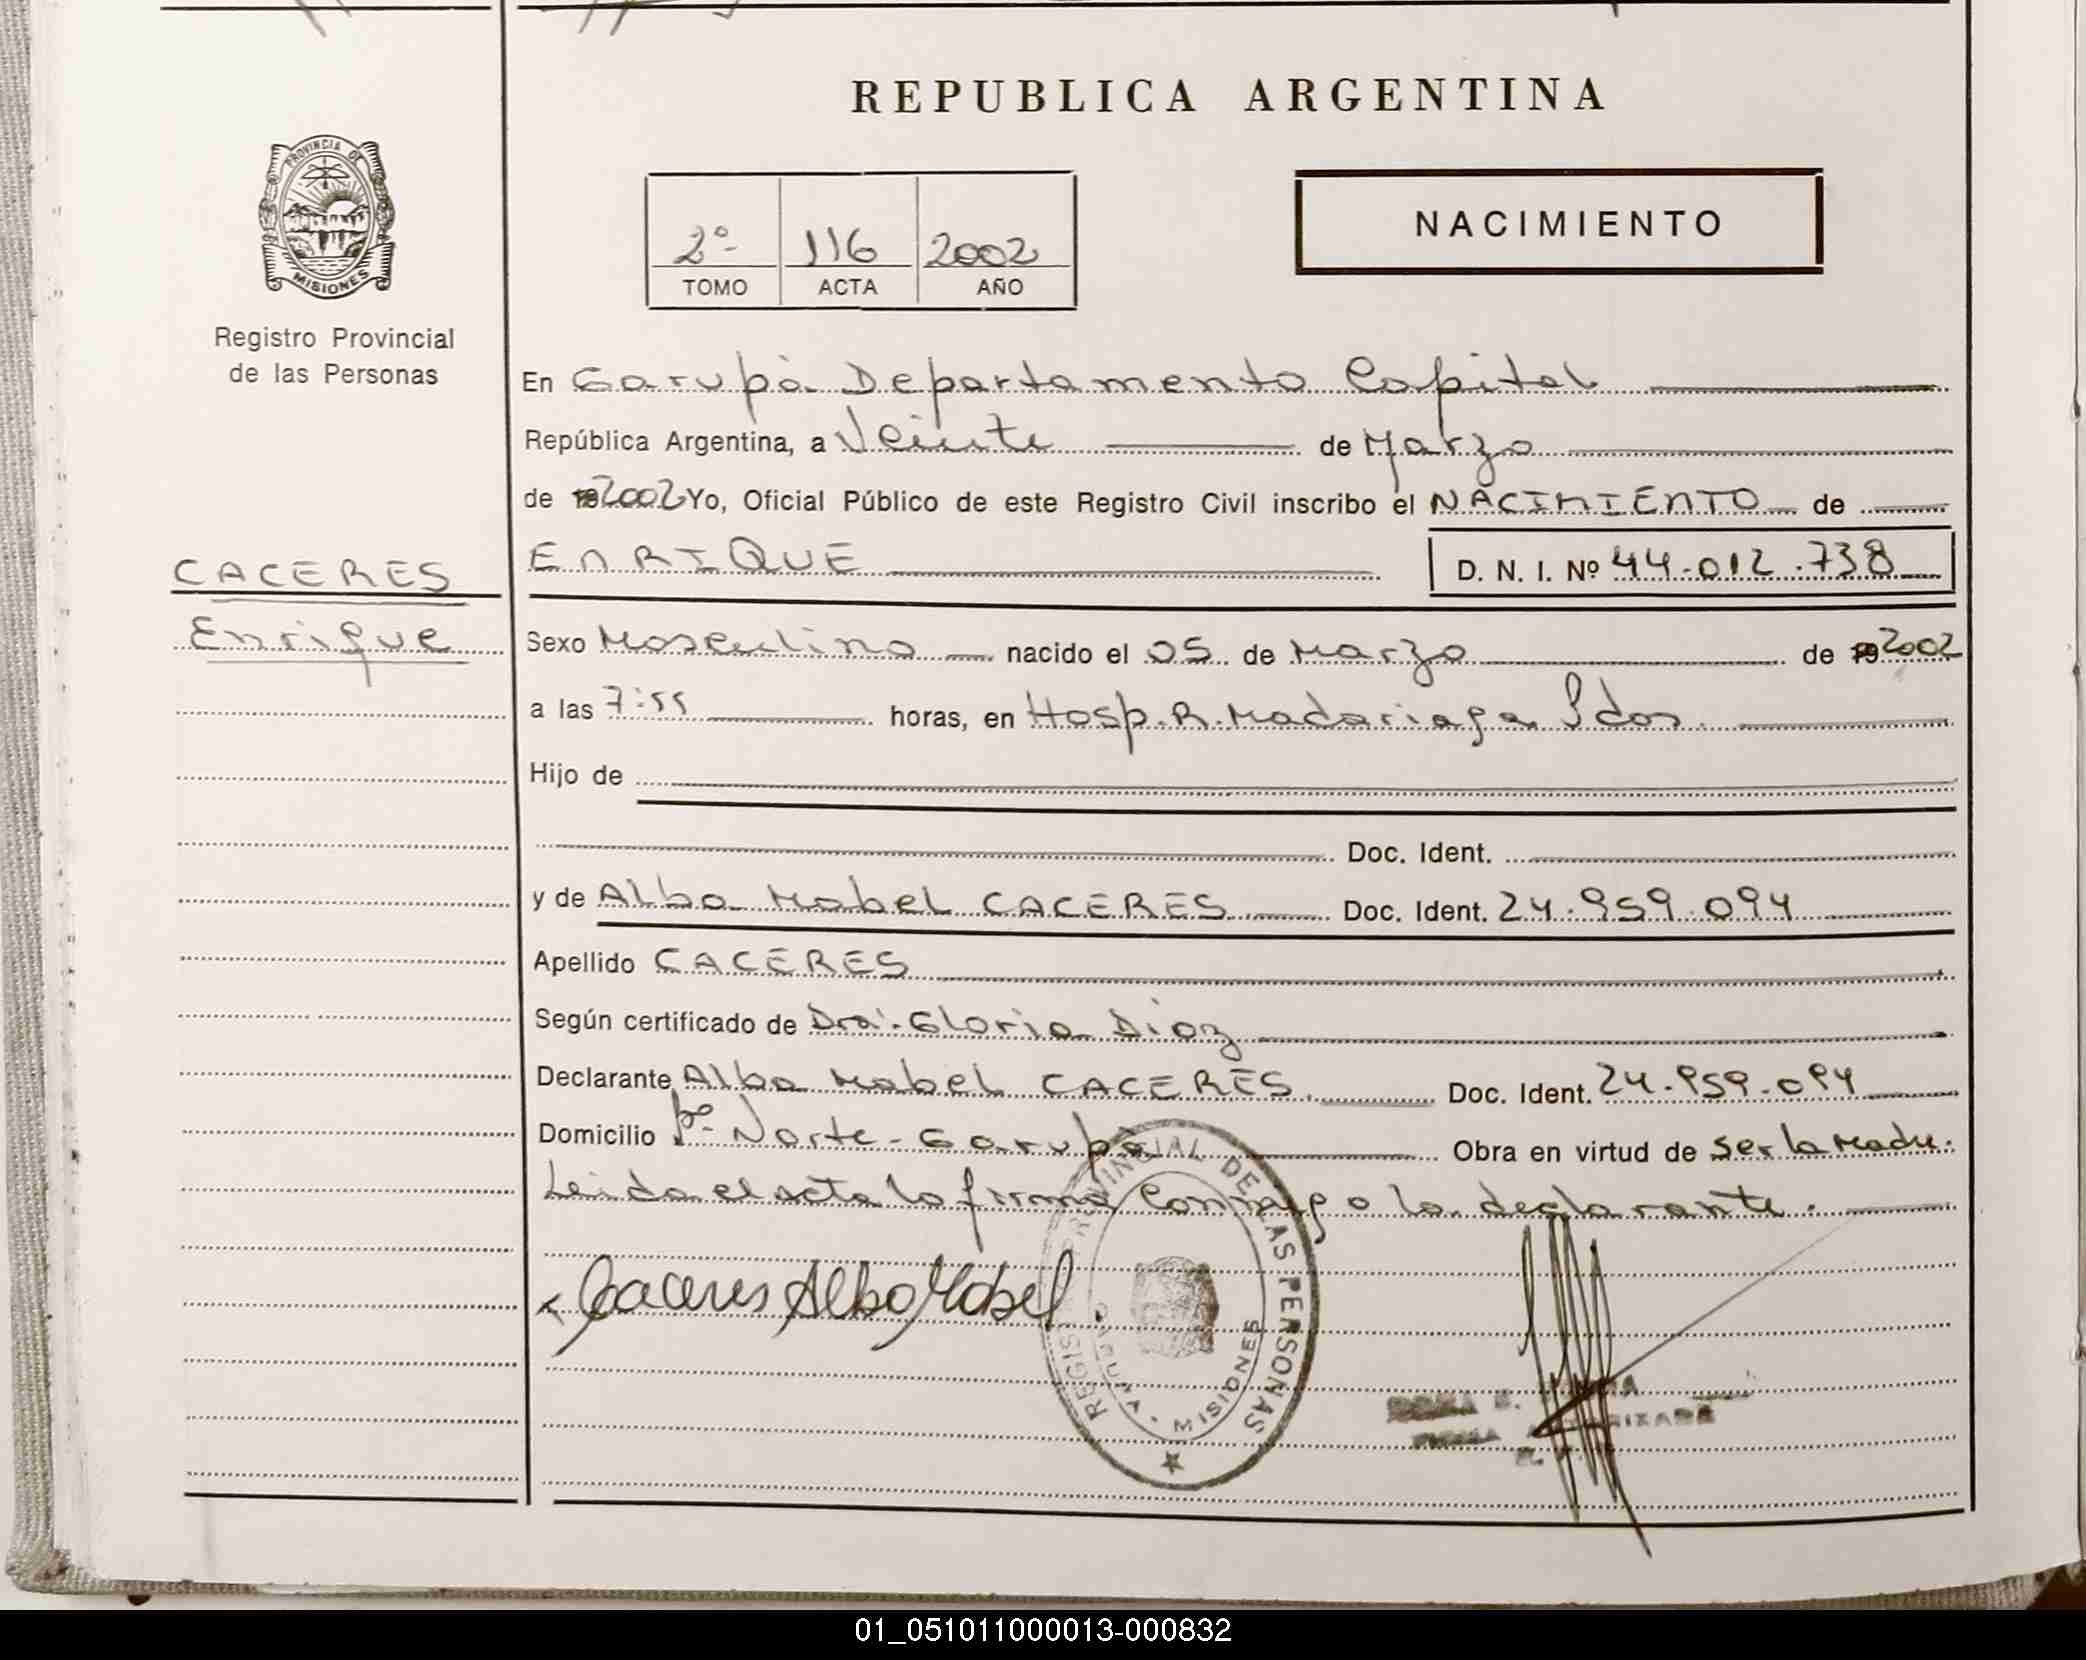 REPUBLICA ARGENTINA
PROVINCIA DE
MISIONES
Registro Provincial
de las Personas
2º 116 2002
TOMO ACTA AÑO
NACIMIENTO
En Garupá Departamento Capital
República Argentina, a Veinte de Marzo
de 192002 Yo, Oficial Público de este Registro Civil inscribo el NACIMIENTO de
CACERES
Enrique
ENRIQUE D. N. I. Nº 44.012.738
Sexo Masculino nacido el 05 de Marzo de 192002
a las 7:55 horas, en Hosp. R. Madariaga Pdas.
Hijo de
Doc. Ident.
y de Alba Mabel CACERES Doc. Ident. 24.959.094
Apellido CACERES
Según certificado de Dra. Gloria Diaz
Declarante Alba Mabel CACERES. Doc. Ident. 24.959.094
Domicilio Bº Norte - Garupá Obra en virtud de ser la Madre.
Leida el acta la firma conmigo la declarante.
Caceres Alba Mabel
REGISTRO PROVINCIAL DE LAS PERSONAS
MISIONES
01_051011000013-000832